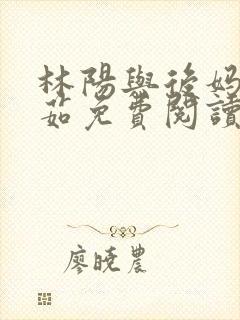 林陽與後媽
茹免費閱讀
廖曉農